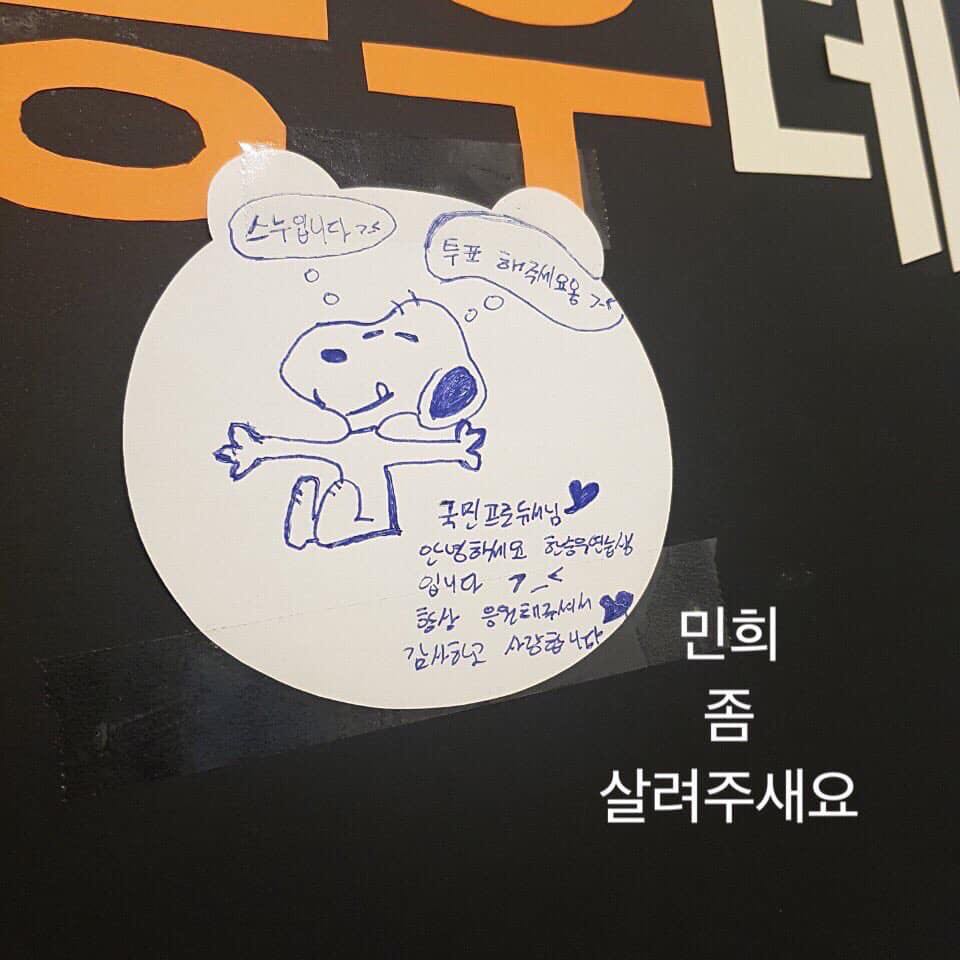 데
스누입니다 >.<
투표 해주세요옹 >.<
국민프로듀서님♥
안녕하세요 한승우연습생
입니다 >_<
항상 응원해주셔서♥
감사하고 사랑합니다
민희
좀
살려주새요